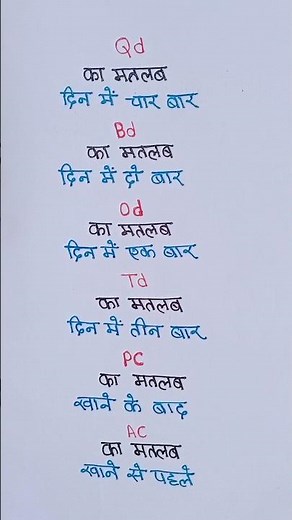 Qd
का मतलब
दिन में चार बार
Bd
का मतलब
दिन में दो बार
Od
का मतलब
दिन में एक बार
Td
का मतलब
दिन में तीन बार
PC
का मतलब
खाने के बाद
AC
का मतलब
खाने से पहले